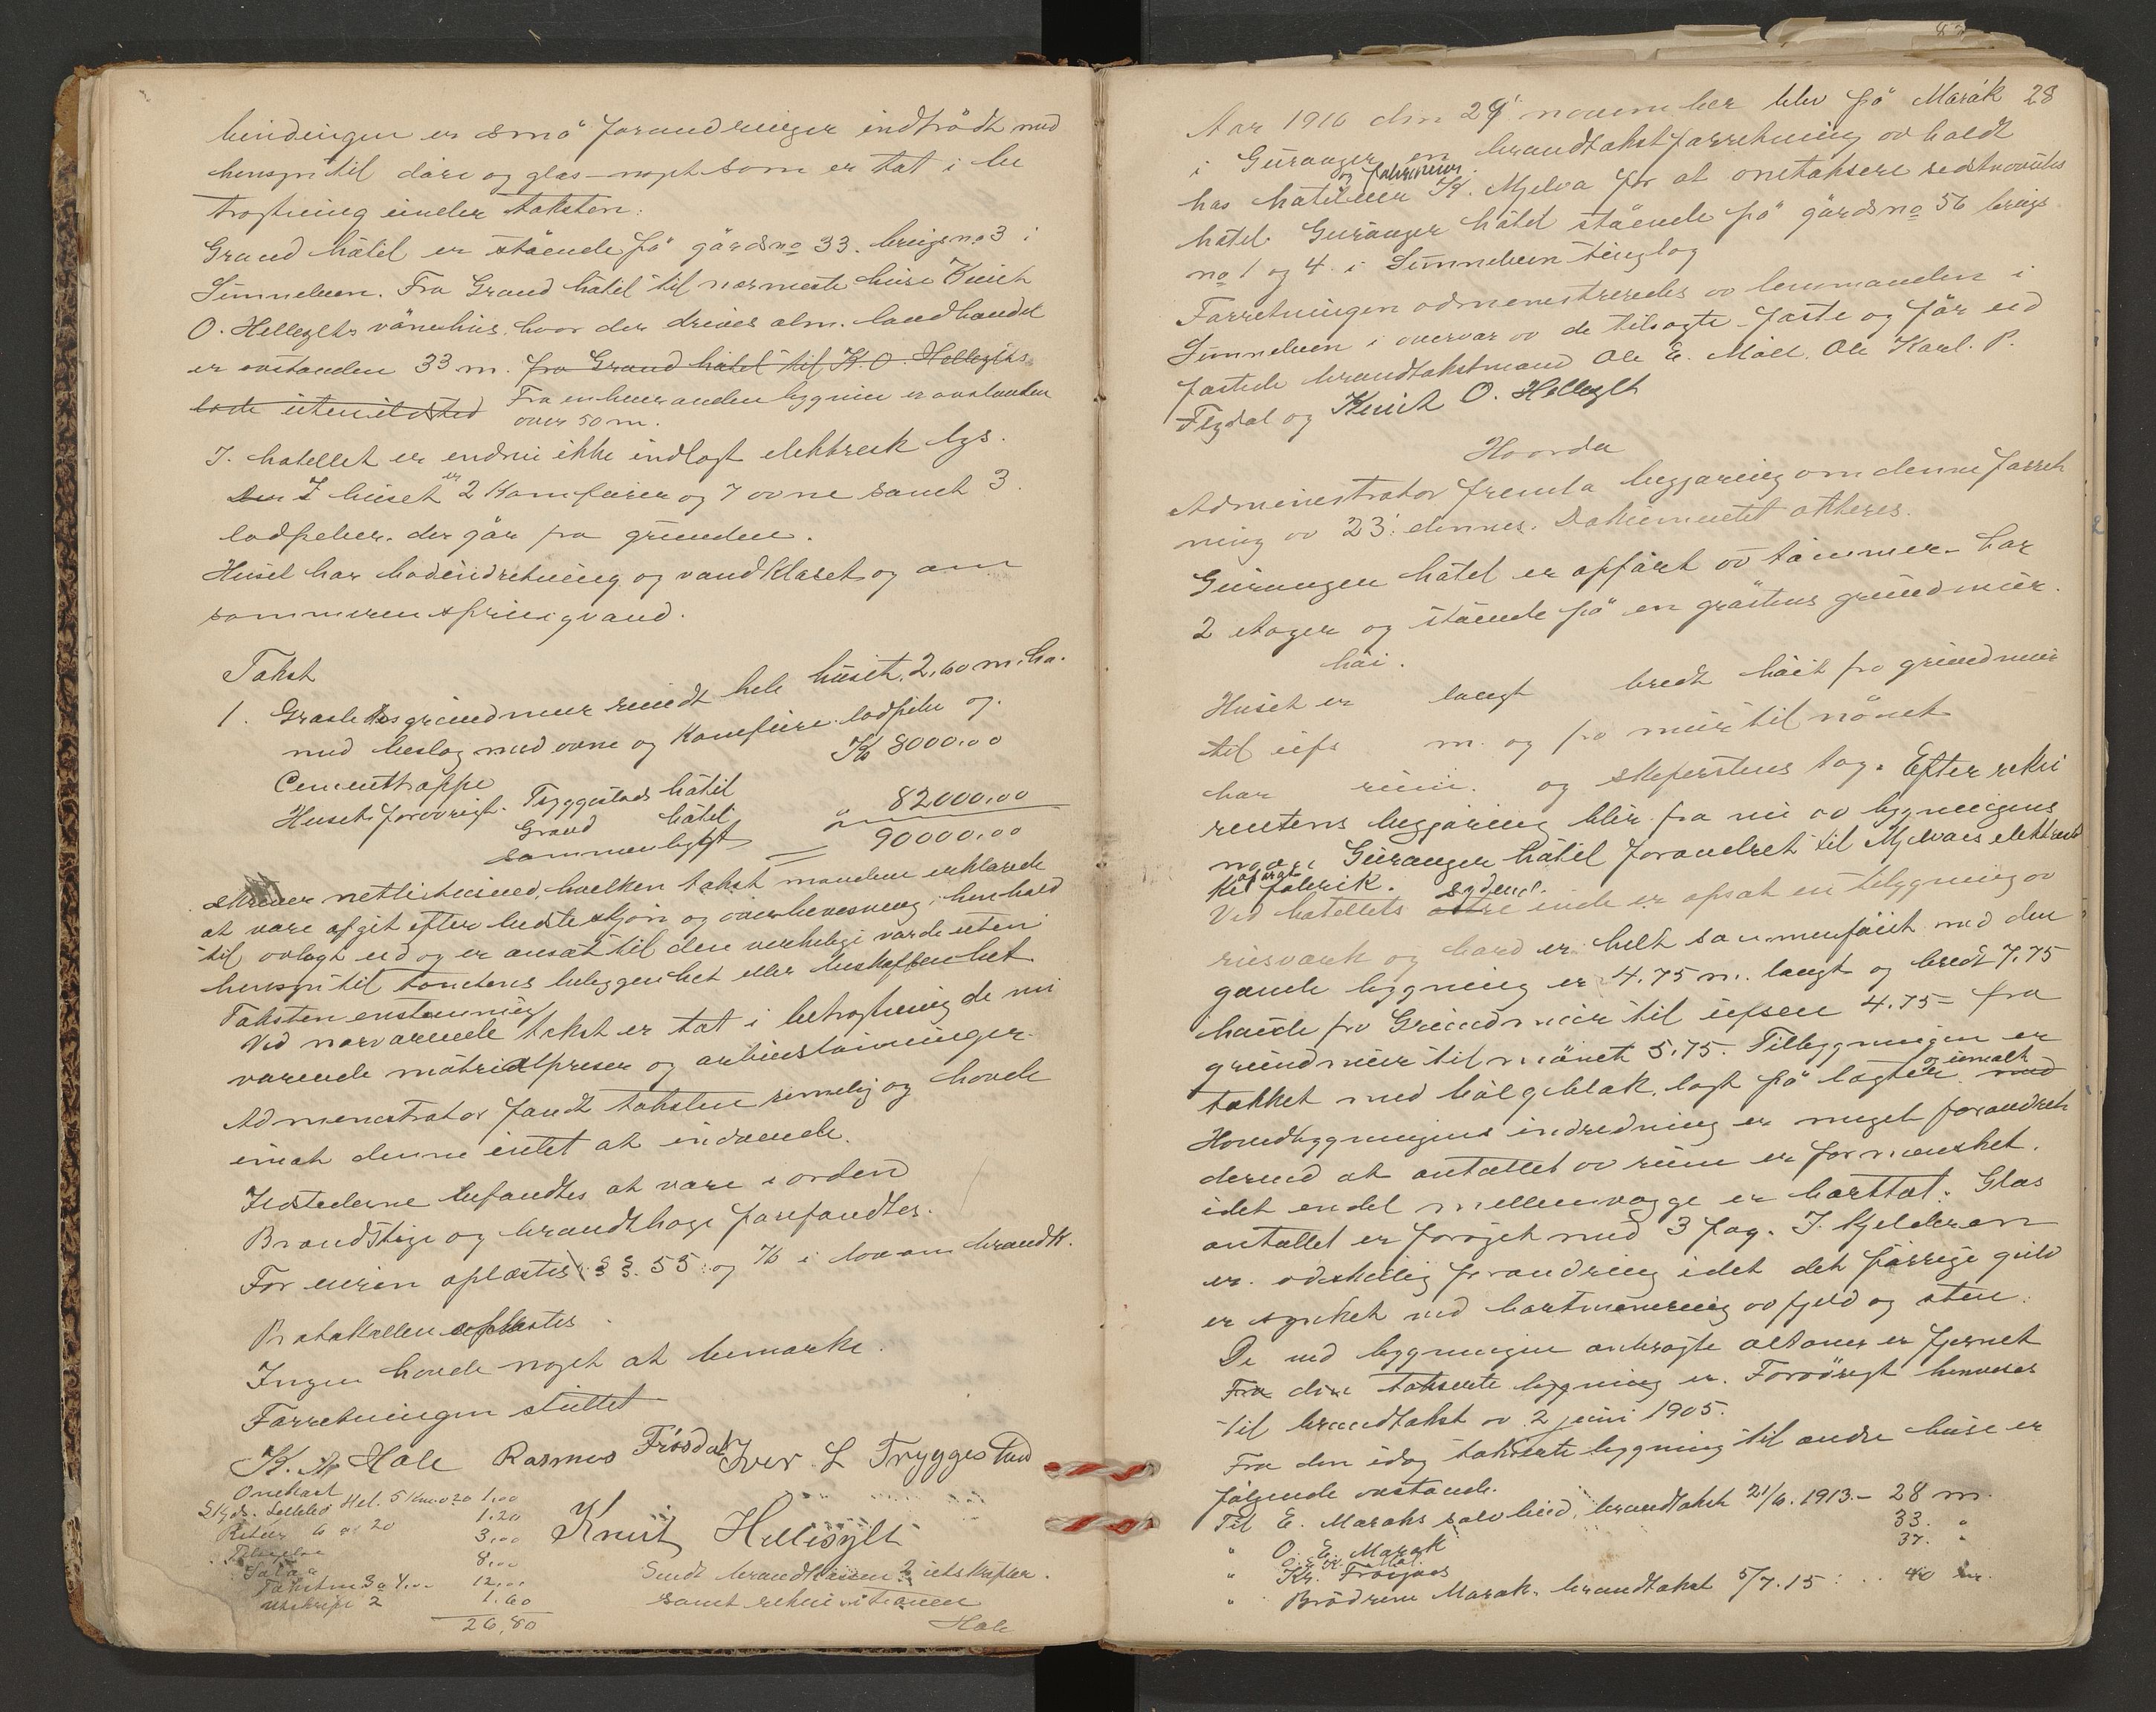 bindingen er små forandringer indtrådt med
hensyn til döre og glas – noget som er tat i be
tragtning under taksten.
Grand hotel er stående på gårdsno 33. brugsno 3 i
Sunnelven. Fra Grand hotel til nærmeste huse Knut
O. Hellesylts vånehus, hvor der drives alm. landhandel
er avstanden 33 m. fra Grand hotel til K. O. Hellesylts
lade uten ildsted Fra enhver anden bygning er avstanden
over 50 m.
I. hotellet er endnu ikke indlagt elektrisk lys.
Den I huset er 2 Komfurer og 7 ovne samt 3
lodpiber. der går fra grunden.
Huset har badeindretning og vandkloset og om
sommeren springvand.
Takst
1. Gråstensgrundmur rundt hele huset. 2,60 m. hø.
med beslag med ovne og Komfure. lodpibe og.
Cementtrappe Kr 8000,00
Huset forøvrigt. Tryggestads hotel
Grand hotel " 82000,00
sammenlagt 90000,00
skriver nettitusind, hvilken takst mændene erklærede
at være afgit efter bedste skjøn og overbevisning i henhold
til avlagt ed og er ansat til den virkelige værdi uten
hensyn til tomtens beliggenhet eller beskaffenhet.
Taksten enstemmig
Ved nærværende takst er tat i betragtning de nu
værende matrialpriser og arbeidslønninger.
Administrator fandt taksten rimelig og havde
imot denne intet at indvende.
Ildstederne befandtes at være i orden
Brandstige og brandhage forefandtes.
For eieren oplæstes §§. 55 og 76 i lov om brandk.
Protokollen oplæstes.
Ingen havde noget at bemærke.
Forretningen sluttet
K. N Hole Rasmus Frösdal Iver L Tryggestad
Knut Hellesylt
Skyds. Hel. 5 Km o 20 1,00
Retur 6 a 20 1.20
3,00
8,00
Takstm 3 a 4,00 12,00
utskrift 2 1.60
26,80
Sendt brandkassen 2 utskrifter.
samt rekvisitionen
Hole
28
Aar 1916 den 29' november blev på Maråk
i Geiranger en brandtakstforretning avholdt
og fabrikeier
hos hoteleier K. Mjelva for at omtaksere sidstnævntes
hotel Geiranger hotel stående på gårdsno 56 brugs
no 1 og 4. i Sunnelven tinglag
Forretningen administreredes av lensmanden i
Sunnelven i overvær av de tilsagte faste og før ed
fæstede brandtakstmænd Ole E. Möll. Ole Karl. P.
Flydal og Knut O. Hellesylt
Hvorda
Administrator fremla begjæring om denne forret
ning av 23' dennes. Dokumentet akteres.
Geiranger hotel er opført av tømmer – har
2 etager og stående på en gråstens grundmur.
høi.
Huset er langt bredt høit fra grundmur
til ufs m. og fra mur til mönet
har rum. og skiferstens tag. Efter rekvi
rentens begjæring blir fra nu av bygningens
navn Geiranger hotel forandret til Mjelvas elektris
ke aparat fabrik. sydend.
Ved hotellets östre ende er opsat en tilbygning av
reisværk og bord er helt sammenføiet med den
gamle bygning er 4.75 m. langt og bredt 7.75
høide fra Grundmur til ufsen 4.75 – fra
grundmur til mönet 5.75. Tilbygningen er
og umalt
tækket med bölgeblek, lagt på lægter. med
Hovedbygningens indredning er meget forandret
derved at antallet av rum er formindsket.
idet endel mellemvægge er borttat. Glas
antallet er forøget med 3 fag. I. Kjelderen
er. adskillig forandring idet det förrige gulv
er synket ved bortminering av fjeld og sten.
De ved bygningen anbragte altaner er fjernet
Fra den takserte bygning er. Forövrigt henvises
til brandtakst av 2 juni 1905.
Fra den idag takserte bygning til andre huse er
følgende avstande.
Til E. Maraks salvbud, brandtakst 21/6. 1913. – 28 m.
" O. E. Marak 33. "
" Kr. 37. "
" Brödrene Marak. brandtakst 5/7. 15: .. 40 m.